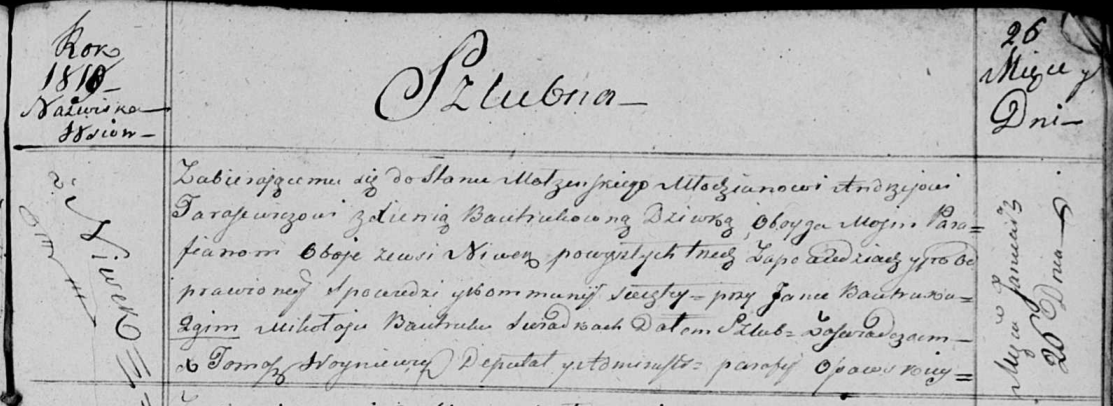 Rok
1810
Nazwiska
Wsiow
Szlubna
26
Mięcy
Dni
z Niwek
Zabierającemu się do Stanu Małzenskiego Młodzianowi Andrzejowi
Tarasewiczowi z Bautrukowną Dziewką, Oboyga Moim Para=
fianom Oboje zewsi Niwek po wyszłych trzech Zapowiedziach y po od
prawioney Spowiedzi y kommunij = przy Janie Bautruku=
2gim Mikołaju Bautruku Swiadkach Dałem Szlub = Zaswiadczam
X Tomasz Woyniewicz Deputat y Administr= parafij
Miesiąc Januarij
26 Dnia